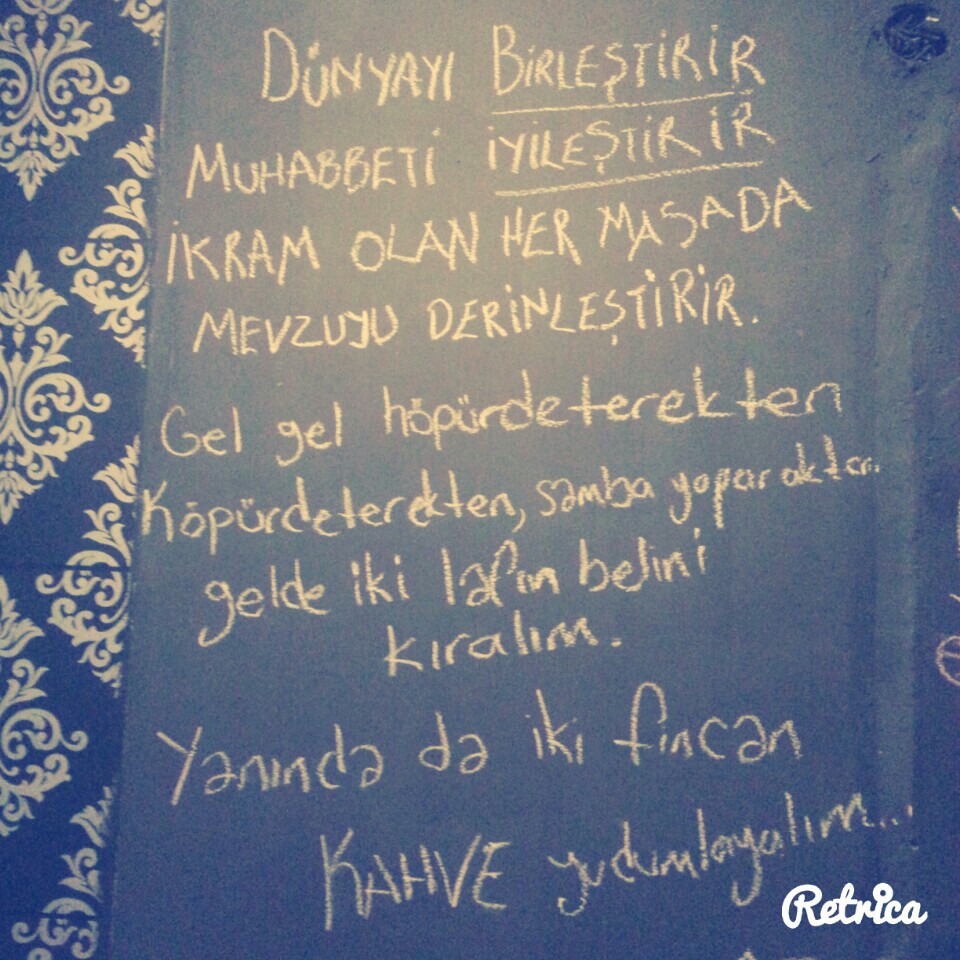 DÜNYAYI BİRLEŞTİRİR
MUHABBETİ İYİLEŞTİRİR
İKRAM OLAN HER MASADA
MEVZUYU DERİNLEŞTİRİR.
Gel gel höpürdeterekten
Köpürdeterekten, samba yaparaktan
gelde iki lafın belini
kıralım.
Yanında da iki fincan
KAHVE yudumlayalım...
Retrica